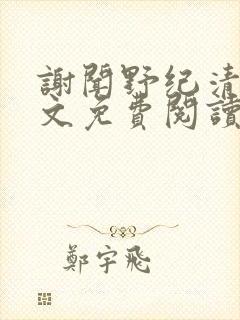 謝聞野紀清
文免費閱讀
鄭宇飛